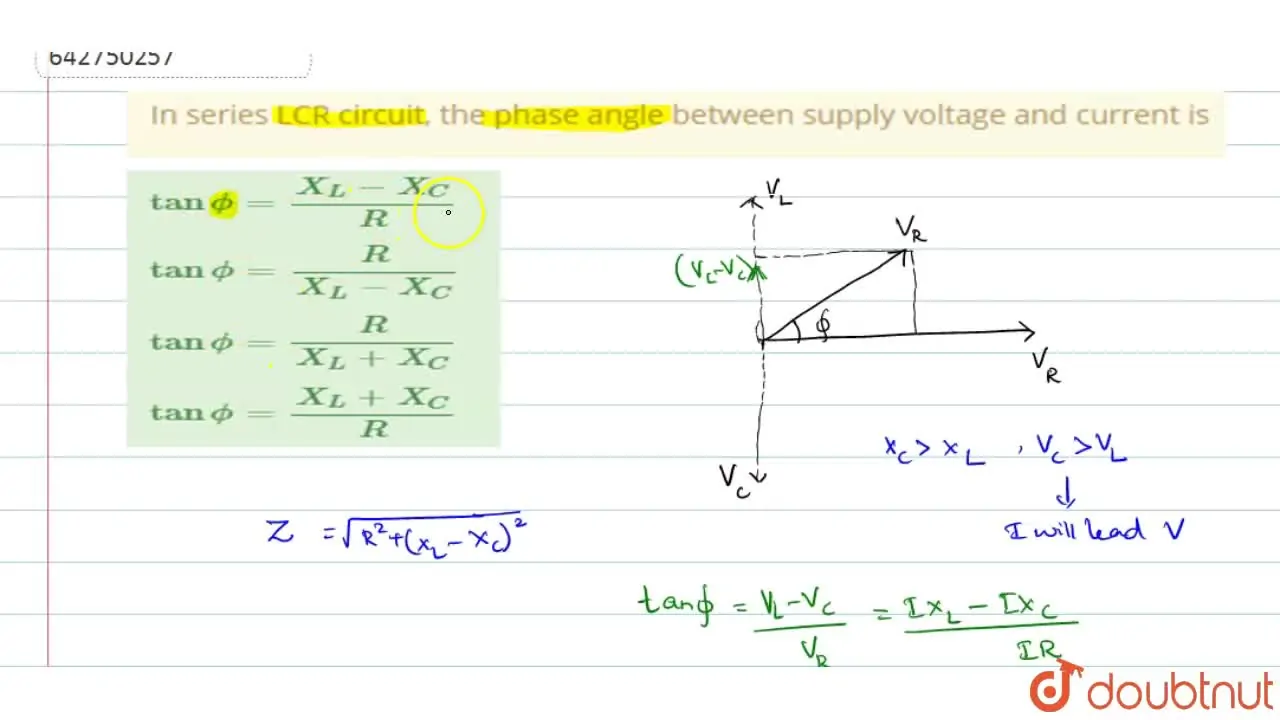 642750257
In series LCR circuit, the phase angle between supply voltage and current is
tan ϕ = (X_L − X_C) / R
tan ϕ = R / (X_L − X_C)
tan ϕ = R / (X_L + X_C)
tan ϕ = (X_L + X_C) / R
V_L
V_R
(V_L-V_C)
ϕ
V_R
V_C
X_C > X_L , V_C > V_L
↓
I will lead V
Z = √(R² + (X_L − X_C)²)
tanϕ = (V_L − V_C) / V_R = (IX_L − IX_C) / IR
doubtnut